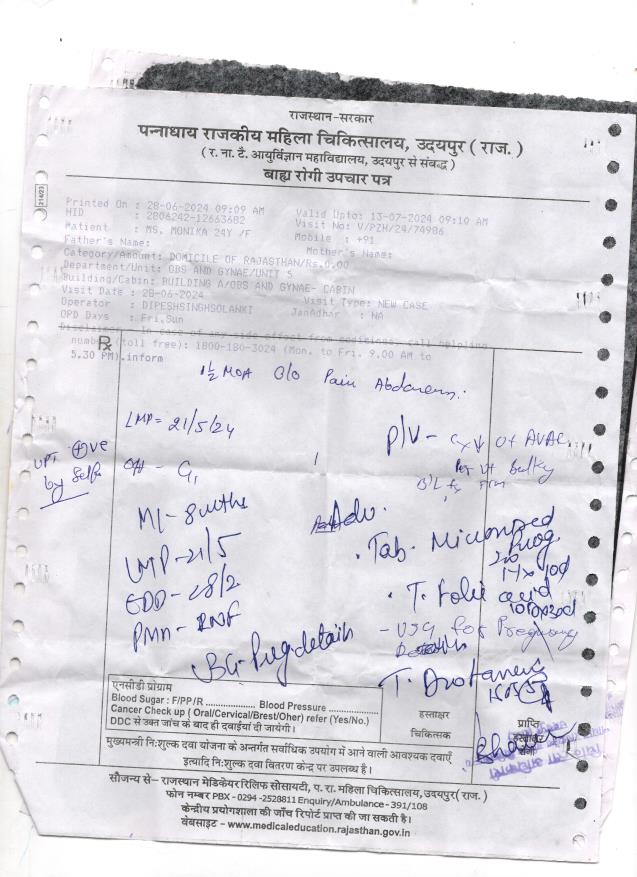 राजस्थान-सरकार
पन्नाधाय राजकीय महिला चिकित्सालय, उदयपुर ( राज. )
( र. ना. टै. आयुर्विज्ञान महाविद्यालय, उदयपुर से संबद्ध )
बाह्य रोगी उपचार पत्र
Printed On : 28-06-2024 09:09 AM Valid Upto: 13-07-2024 09:10 AM
HID : 2806242-12663682 Visit No: V/PZH/24/74986
Patient : MS. MONIKA 24Y /F Mobile : +91
Father's Name: Mother's Name:
Category/Amount: DOMICILE OF RAJASTHAN/Rs.0.00
Department/Unit: OBS AND GYNAE/UNIT 5
Building/Cabin: BUILDING A/OBS AND GYNAE- CABIN
Visit Date : 28-06-2024 Visit Type: NEW CASE
Operator : DIPESHSINGHSOLANKI JanAdhar : NA
OPD Days : Fri,Sun
effect from medicines, call helpline
number (toll free): 1800-180-3024 (Mon. to Fri. 9.00 AM to
5.30 PM).inform
Rx
1½ MOA Pain Abdomen
LMP = 21/5/24
P/V - UT AVAC
UPT +ve
by self
G1
bulky
M/- 8 mths
Adv.
Tab. Micronized
Prog.
LMP - 21/5
EDD - 28/2
T. Folic acid
- USG for Pregnancy
T. Drotaverine
एनसीडी प्रोग्राम
Blood Sugar : F/PP/R .................. Blood Pressure ..................
Cancer Check up ( Oral/Cervical/Brest/Oher) refer (Yes/No.)
DDC से उक्त जांच के बाद ही दवाईयां दी जायेगी।
हस्ताक्षर
चिकित्सक
प्राप्ति
मुख्यमन्त्री नि:शुल्क दवा योजना के अन्तर्गत सर्वाधिक उपयोग में आने वाली आवश्यक दवाएँ
इत्यादि नि:शुल्क दवा वितरण केन्द्र पर उपलब्ध है।
सौजन्य से– राजस्थान मेडिकेयर रिलिफ सोसायटी, प. रा. महिला चिकित्सालय, उदयपुर( राज.)
फोन नम्बर PBX - 0294 -2528811 Enquiry/Ambulance - 391/108
केन्द्रीय प्रयोगशाला की जाँच रिपोर्ट प्राप्त की जा सकती है।
वेबसाइट – www.medicaleducation.rajasthan.gov.in